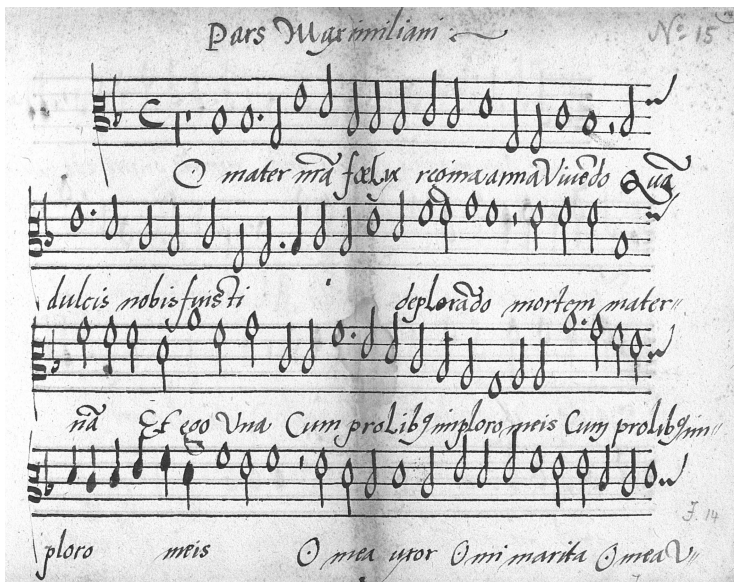 Pars Maximiliani
Nº 15
O mater mea fœlix regina anna Vivēdo Quā
dulcis nobis fuisti deplorādo mortem mater„
nā Et ego Una Cum prolibꝰ imploro meis Cum prolibꝰ im„
J. 14
ploro meis O mea uxor O mi marita O mea V„